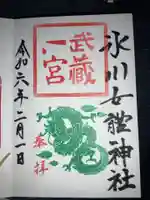 氷川女體神社
武蔵
一宮
奉拝
令和六年二月一日